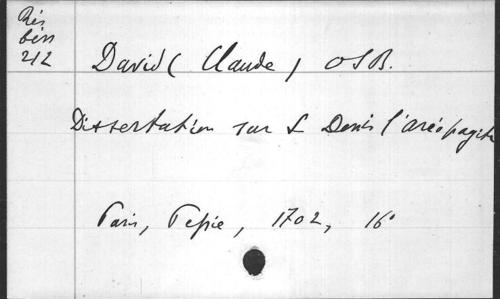 Rés
bén
212
David (Claude) OSB.
Dissertation sur S Denis l'aréopagite
Paris, Pepie, 1702, 16°